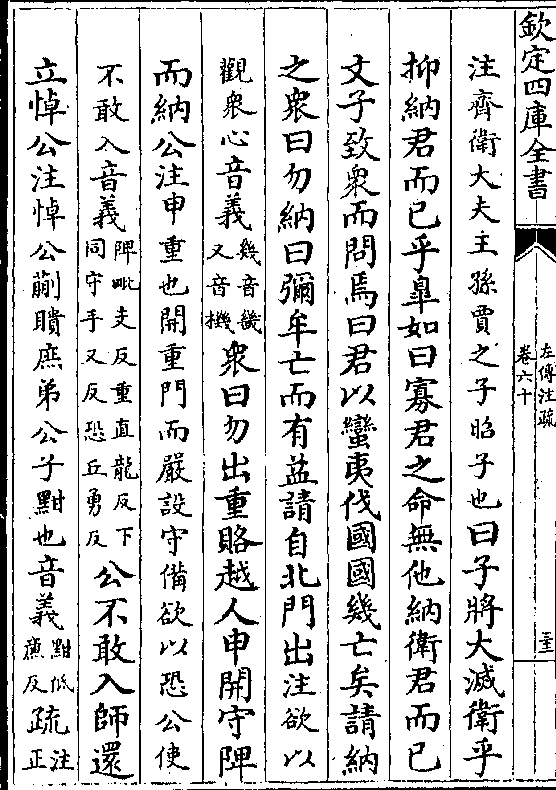 欽定四庫全書
左傳注疏
卷六十
三
注齊衛大夫王孫賈之子昭子也曰子將大滅衛乎
抑納君而已乎臯如曰寡君之命無他納衛君而已
文子致衆而問焉曰君以蠻夷伐國國幾亡矣請納
之衆曰勿納曰彌牟亡而有益請自北門出注欲以
觀衆心音義幾音畿又音機衆曰勿出重賂越人申開守陴
而納公注申重也開重門而嚴設守備欲以恐公使
不敢入音義陴毗支反重直龍反下同守手又反恐丘勇反公不敢入師還
立悼公注悼公蒯聵庶弟公子黚也音義黚低廉反疏注正